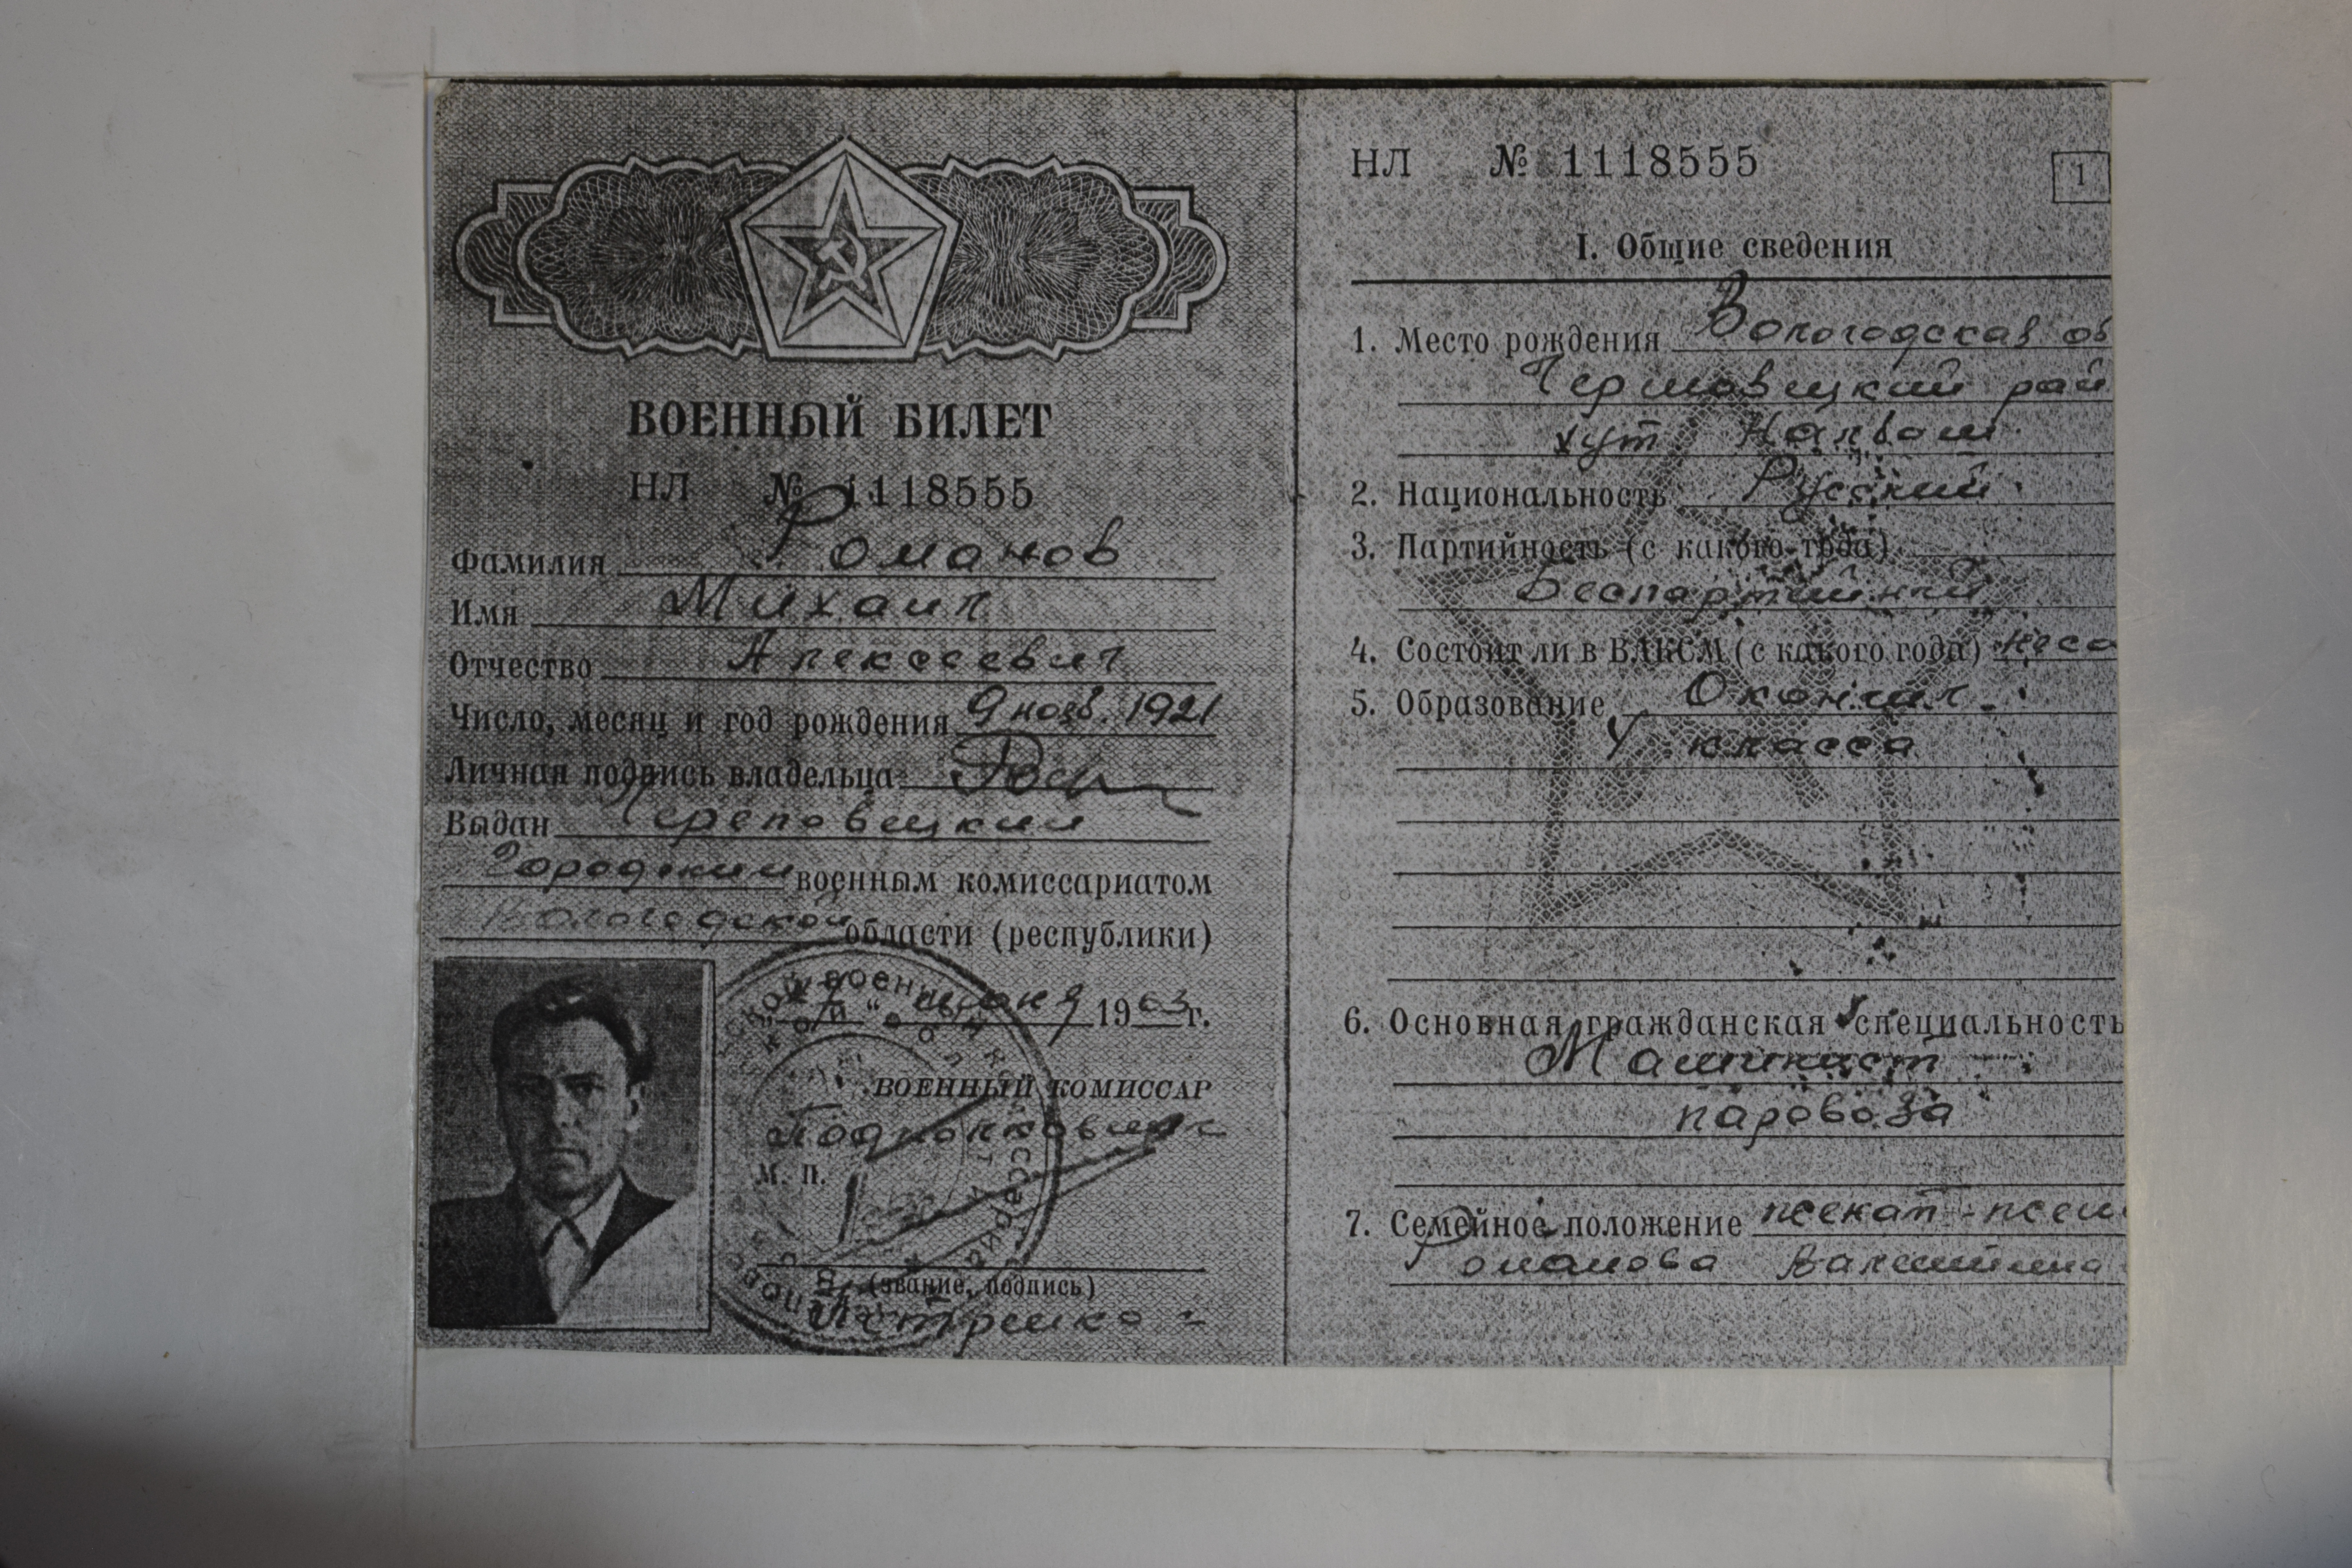 ВОЕННЫЙ БИЛЕТ
НЛ № 1118555
Фамилия Романов
Имя Михаил
Отчество Алексеевич
Число, месяц и год рождения 9 нояб. 1921
Личная подпись владельца
Выдан Череповецким
Городским военным комиссариатом
Вологодской области (республики)
июня 1963 г.
ВОЕННЫЙ КОМИССАР
Подполковник
М. П.
(звание, подпись)
НЛ № 1118555
1
I. Общие сведения
1. Место рождения Вологодская об
рай
хут
2. Национальность Русский
3. Партийность (с какого года)
Беспартийный
4. Состоит ли в ВЛКСМ (с какого года) несо
5. Образование Окончил
класса
6. Основная гражданская специальность
Машинист
паровоза
7. Семейное положение женат - жен
Романова Валентина